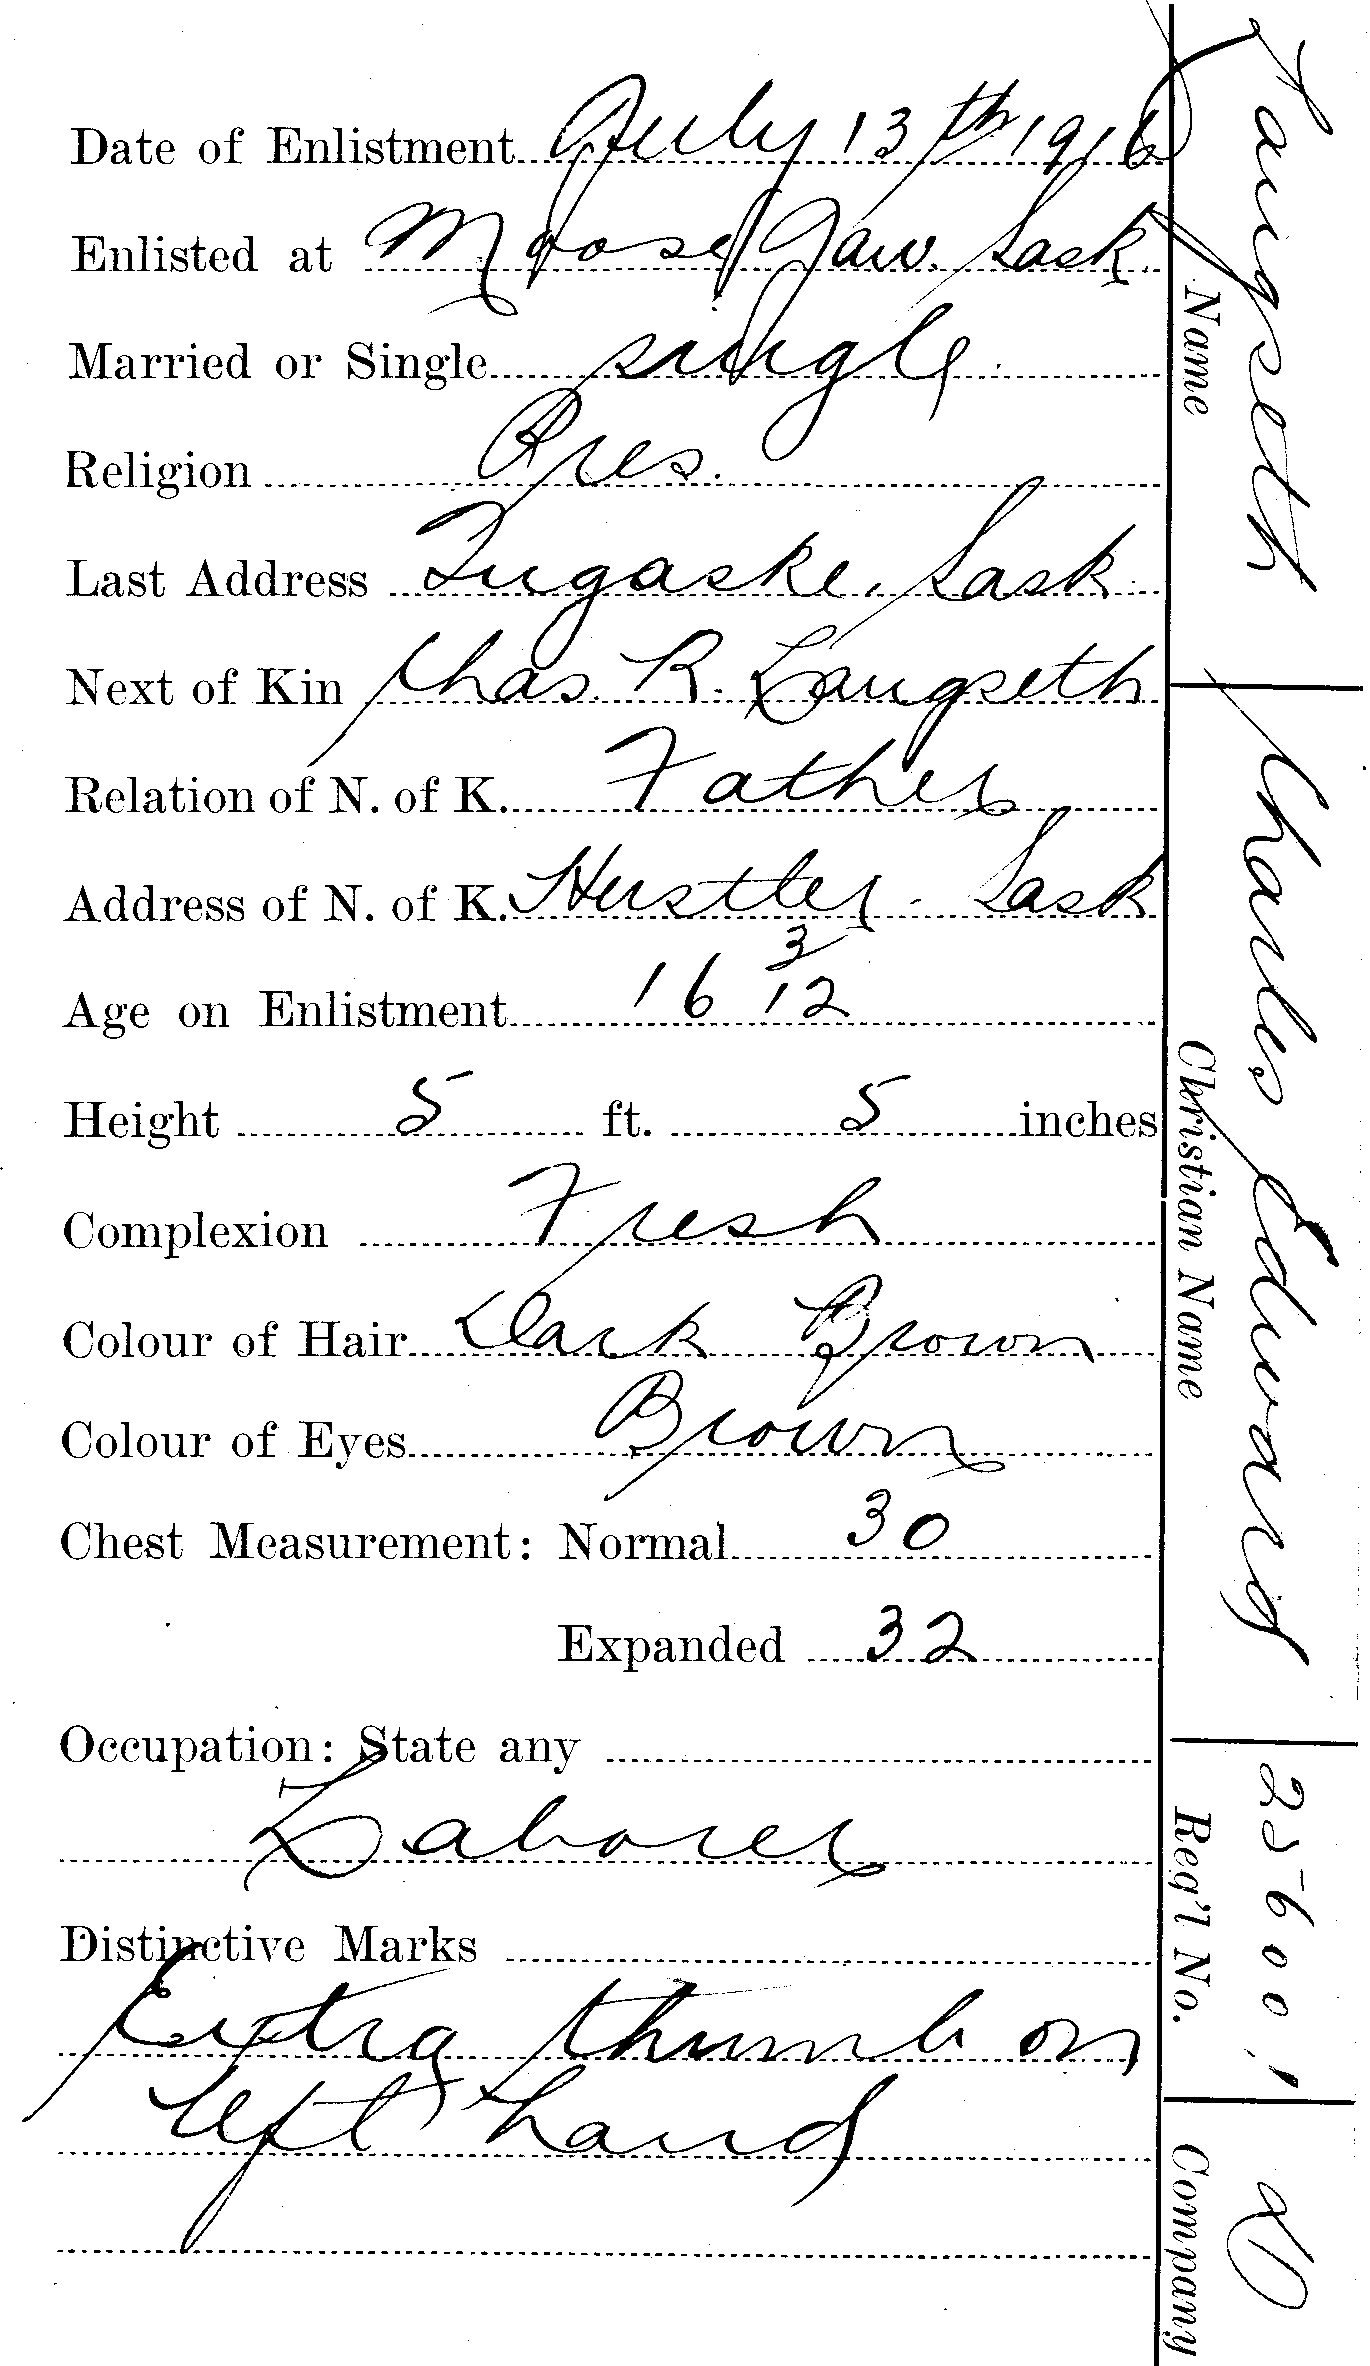 Date of Enlistment July 13th 1916
Enlisted at Moose Jaw. Sask.
Married or Single single.
Religion Pres.
Last Address Tugaske, Sask.
Next of Kin Chas. R. Langseth
Relation of N. of K. Father
Address of N. of K. Hustler - Sask
Age on Enlistment 16 3/12
Height 5 ft. 5 inches
Complexion Fresh
Colour of Hair Dark Brown
Colour of Eyes Brown
Chest Measurement: Normal 30
Expanded 32
Occupation: State any
Laborer
Distinctive Marks
Extra thumb on
left hand
Langseth
Name
Charles Edward
Christian Name
256001
Reg'l No.
D
Company